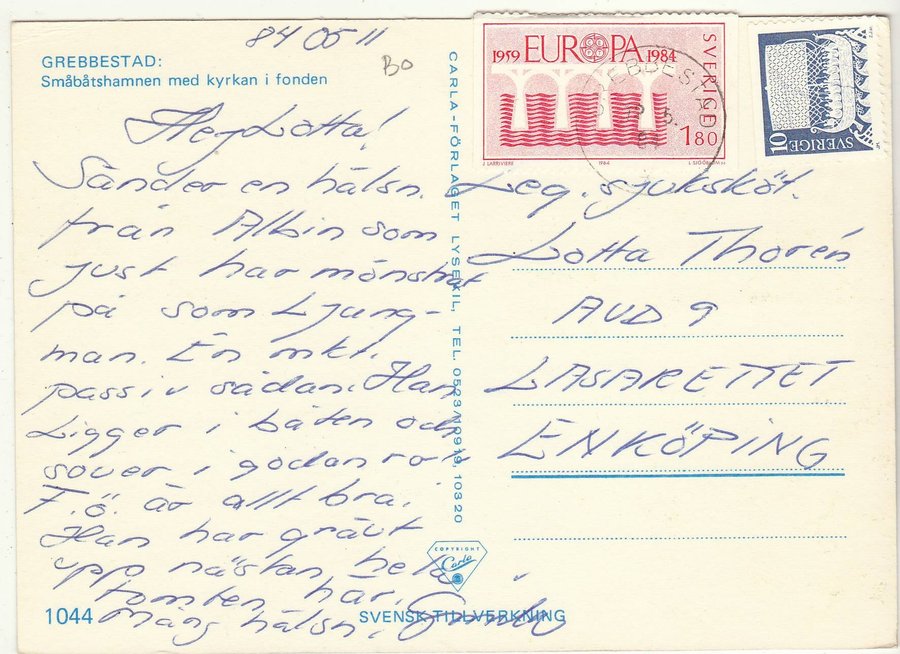 84 05 11
BO
GREBBESTAD:
Småbåtshamnen med kyrkan i fonden
Hej Lotta!
Sänder en hälsn.
från Albin som
just har mönstrat
på som Ljung-
man. En mkt.
passiv sådan. Han
Ligger i båten och
sover i godan ro.
F.ö. är allt bra.
Han har grävt
upp nästan hela
tomten här.
Mång hälsn.
1044
SVENSK TILLVERKNING
CARLA-FÖRLAGET LYSEKIL, TEL. 0523/10919, 10320
COPYRIGHT
Carla
1959 EUROPA 1984
SVERIGE
1.80
J LARRIVIERE
1984
L SJÖÖBLOM SC
GREBBESTAD
10
SVERIGE
Leg. sjuksköt.
Lotta Thorén
AVD 9
LASARETTET
ENKÖPING